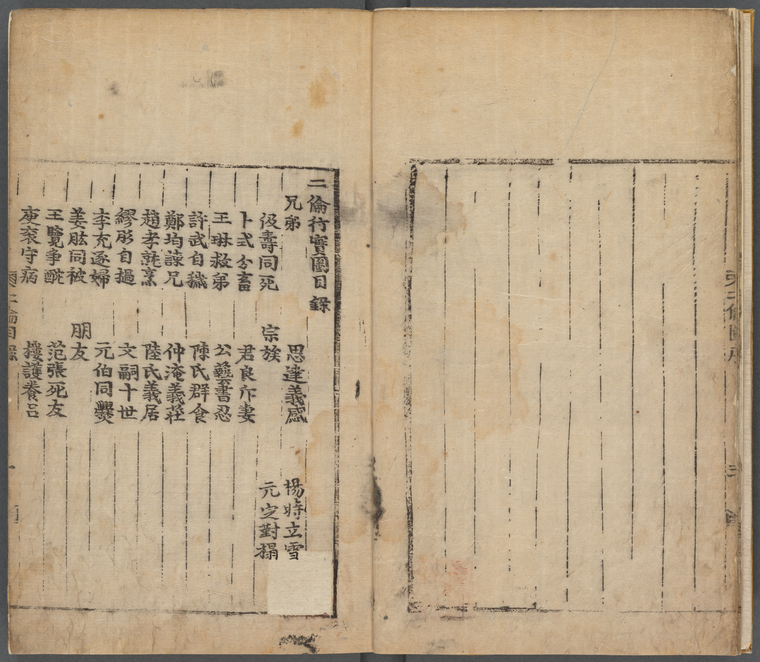 二倫行實圖目錄
兄弟 思達義感 楊時立雪
伋壽同死 宗族 元定對榻
卜式分畜 君良斥妻
王琳救弟 公藝書忍
許武自穢 陳氏群食
鄭均諫兄 仲淹義莊
趙孝就烹 陸氏義居
繆肜自撾 文嗣十世
李充逐婦 元伯同爨
姜肱同被 朋友
王覽爭酖 范張死友
庾袞守病 摟護養呂